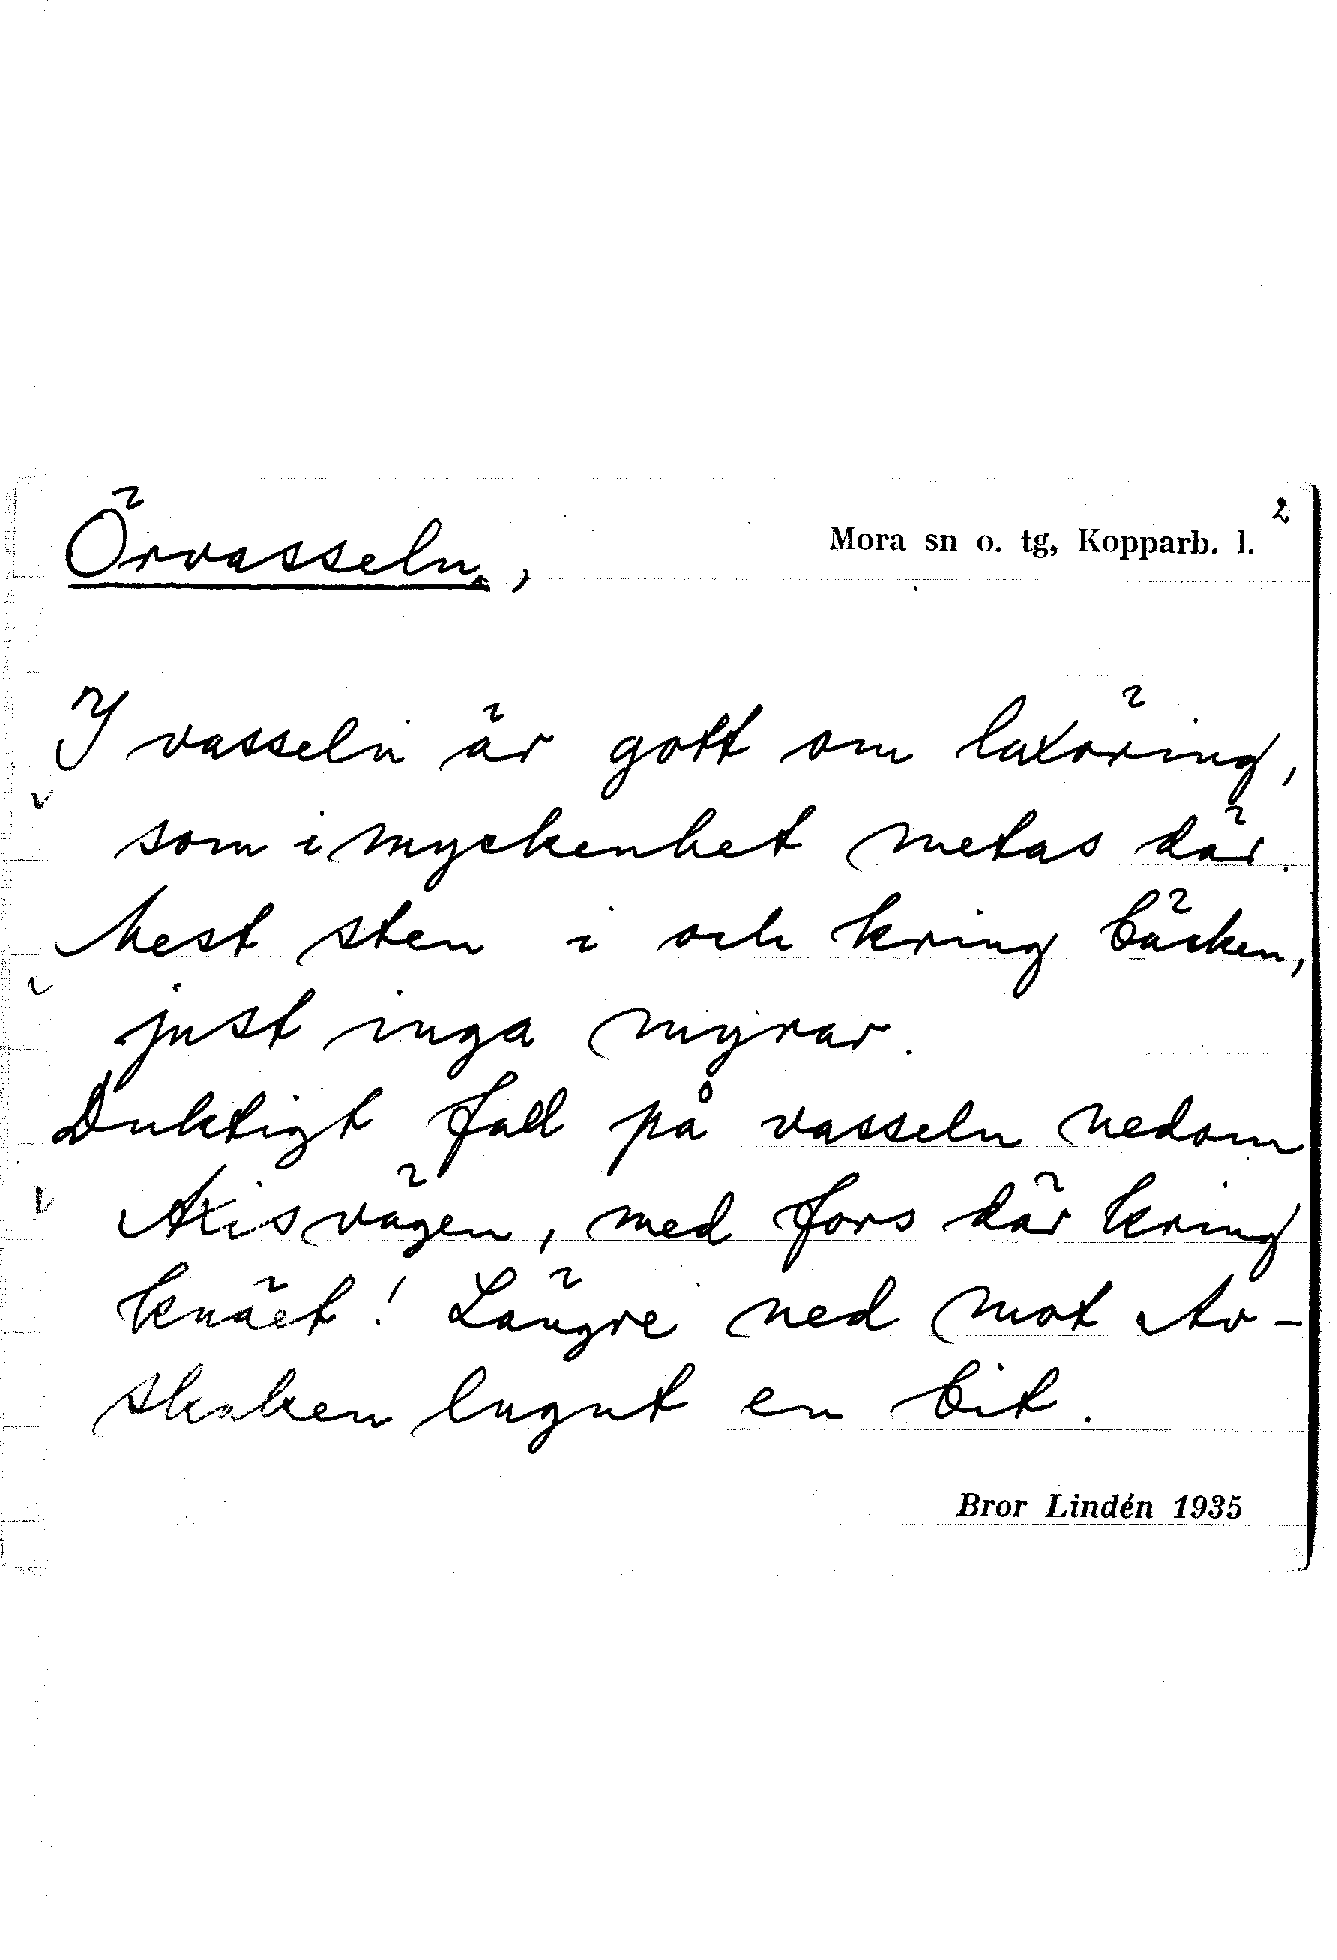 2
Örvasseln, Mora sn o. tg, Kopparb. l.
I vasseln är gott om laxöring,
som i myckenhet metas där.
Mest sten i och kring bäcken,
just inga myrar.
Duktigt fall på vasseln nedom
Axisvägen, med fors där kring
knäet! Längre ned mot Av-
skaken lugnt en bit.
Bror Lindén 1935